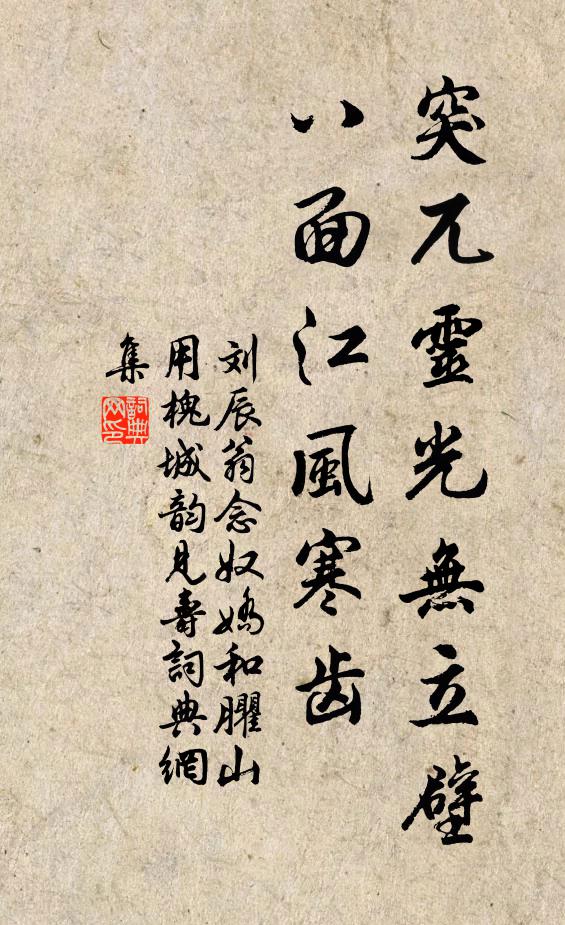 突兀靈光無立壁
八面江風寒齿
刘辰翁念奴嬌和臞山
用槐城韵見壽詞典網
集
詞典网印